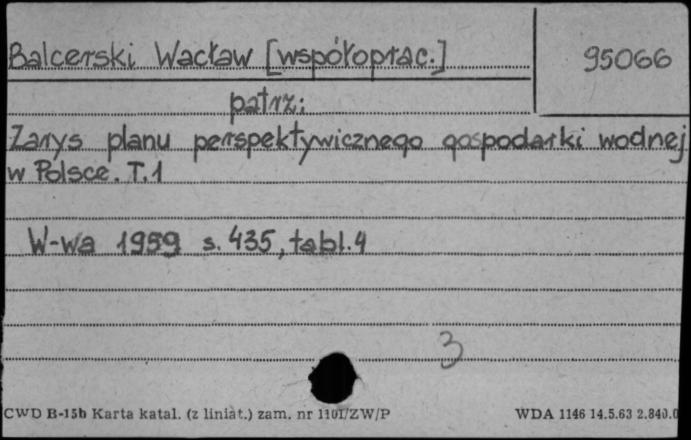 Balcerski Wacław [współoprac.] 95066
patrz:
Zarys planu perspektywicznego gospodarki wodnej
w Polsce. T.1
W-wa 1959 s. 435, tabl. 4
3
CWD B-15b Karta katal. (z liniat.) zam. nr 1101/ZW/P WDA 1146 14.5.63 2.840.0